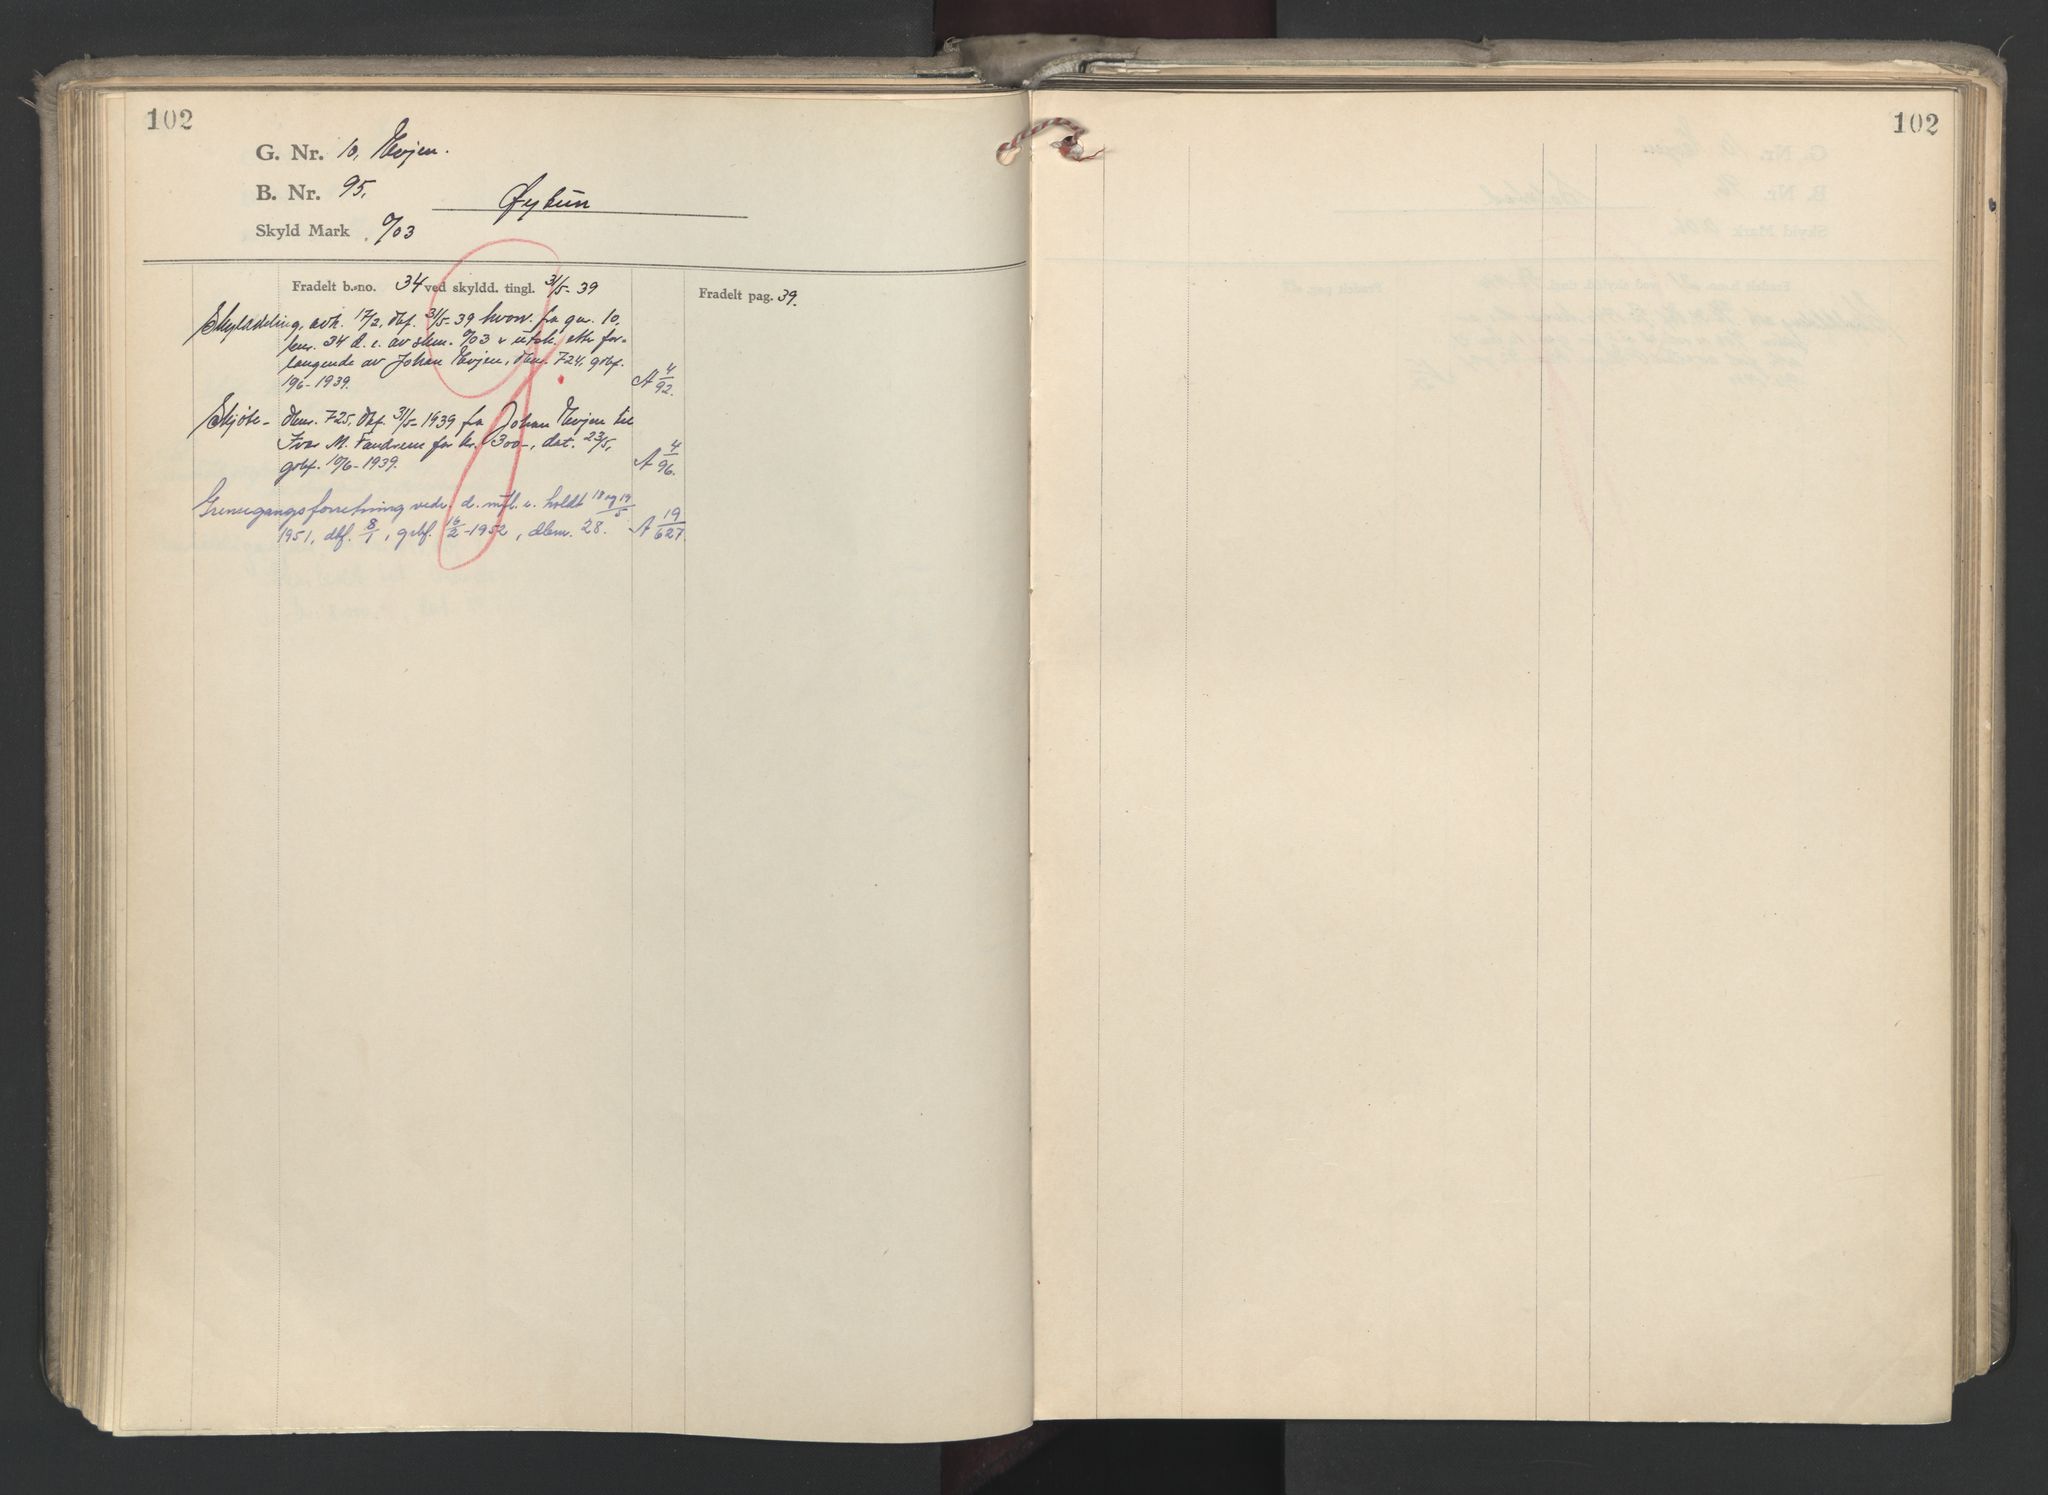 102
G. Nr. 10, Evjen.
B. Nr. 95. Øytun
Skyld Mark 0/03
Fradelt b.-no. 34 ved skyldd. tingl. 31/5-39
Fradelt pag. 39.
Skylddeling, avh. 17/2, dbf. 31/5-39 hvorv. fra gnr. 10,
bnr. 34 d. e. av skm. 0/03 er utsk. etter for-
langende av Johan Evjen, dbnr. 724, gobf.
10/6-1939. A 4/92.
Skjøte - dbnr. 725, dbf. 31/5-1939 fra Johan Evjen til
Ivar M. Tandrem for kr. 300-, dat. 23/5,
gobf. 10/6-1939. A 4/96.
Grensegangsforretning vedr. d. mtrl. e. holdt 18 og 19/5
1951, dbf. 8/1, gobf. 16/2-1952, dbnr. 28. A 19/627.
102